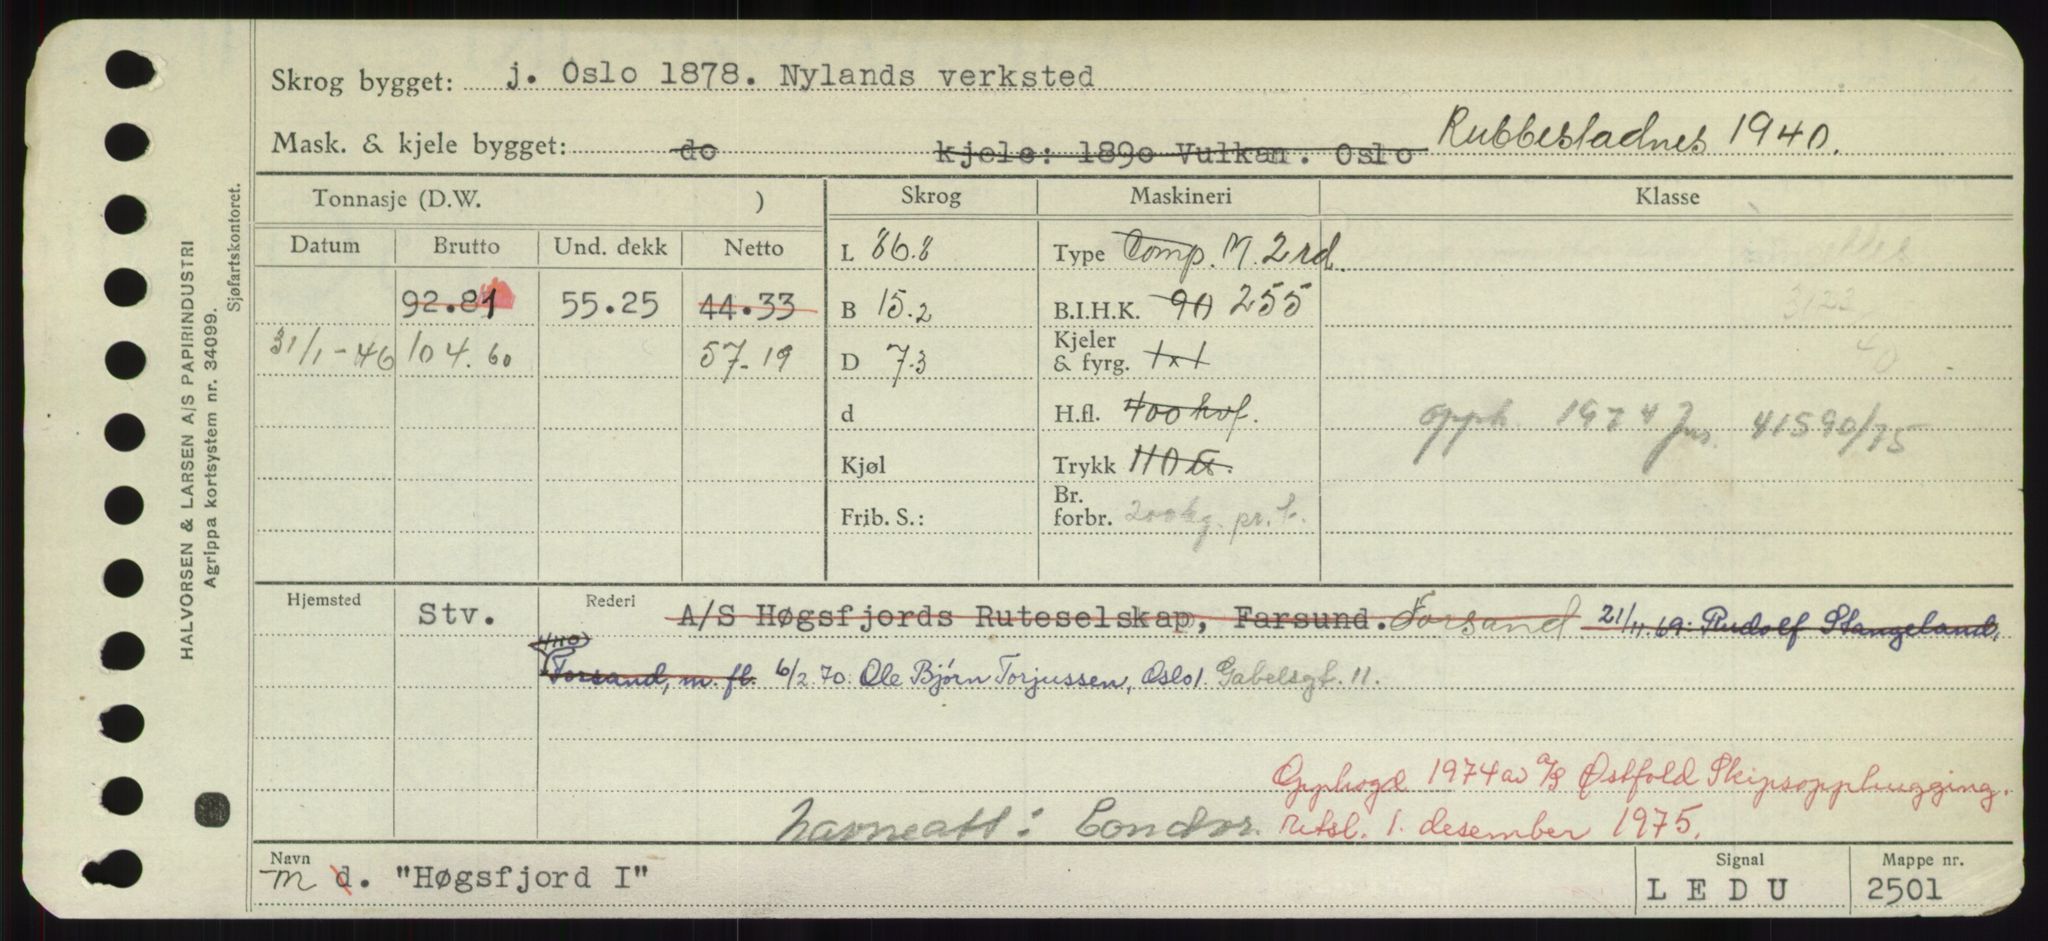 Skrog bygget: j. Oslo 1878. Nylands verksted
Mask. & kjele bygget: do kjele: 1890 Vulkan. Oslo Rubbestadnes 1940.
Tonnasje (D.W. ) Skrog Maskineri Klasse
Datum Brutto Und. dekk Netto L 86.8 Type Comp. M. 2rd.
92.81 55.25 44.33 B 15.2 B.I.H.K. 90 255
3123
31/1-46 104.60 57.19 D 7.3 Kjeler & fyrg. 1x1
40
d H.fl. 400 hvf.
opph. 1974 Jnr. 41590/75
Kjøl Trykk 110 lb.
Frib. S.: Br. forbr. 200 kg. pr. t.
Hjemsted Stv. Rederi A/S Høgsfjords Ruteselskap, Farsund. Forsand 21/11.69. Rudolf Stangeland,
Forsand, m. fl. 6/2.70. Ole Bjørn Torjussen, Oslo 1. Gabelsgt. 11.
Opphogd 1974 av A/S Østfold Skipsopphugging.
Navneatt: Condor. Retsl. 1. desember 1975.
Navn Signal Mappe nr.
m d. "Høgsfjord I" LEDU 2501
HALVORSEN & LARSEN A/S PAPIRINDUSTRI
Agrippa kortsystem nr. 34099.
Sjøfartskontoret.